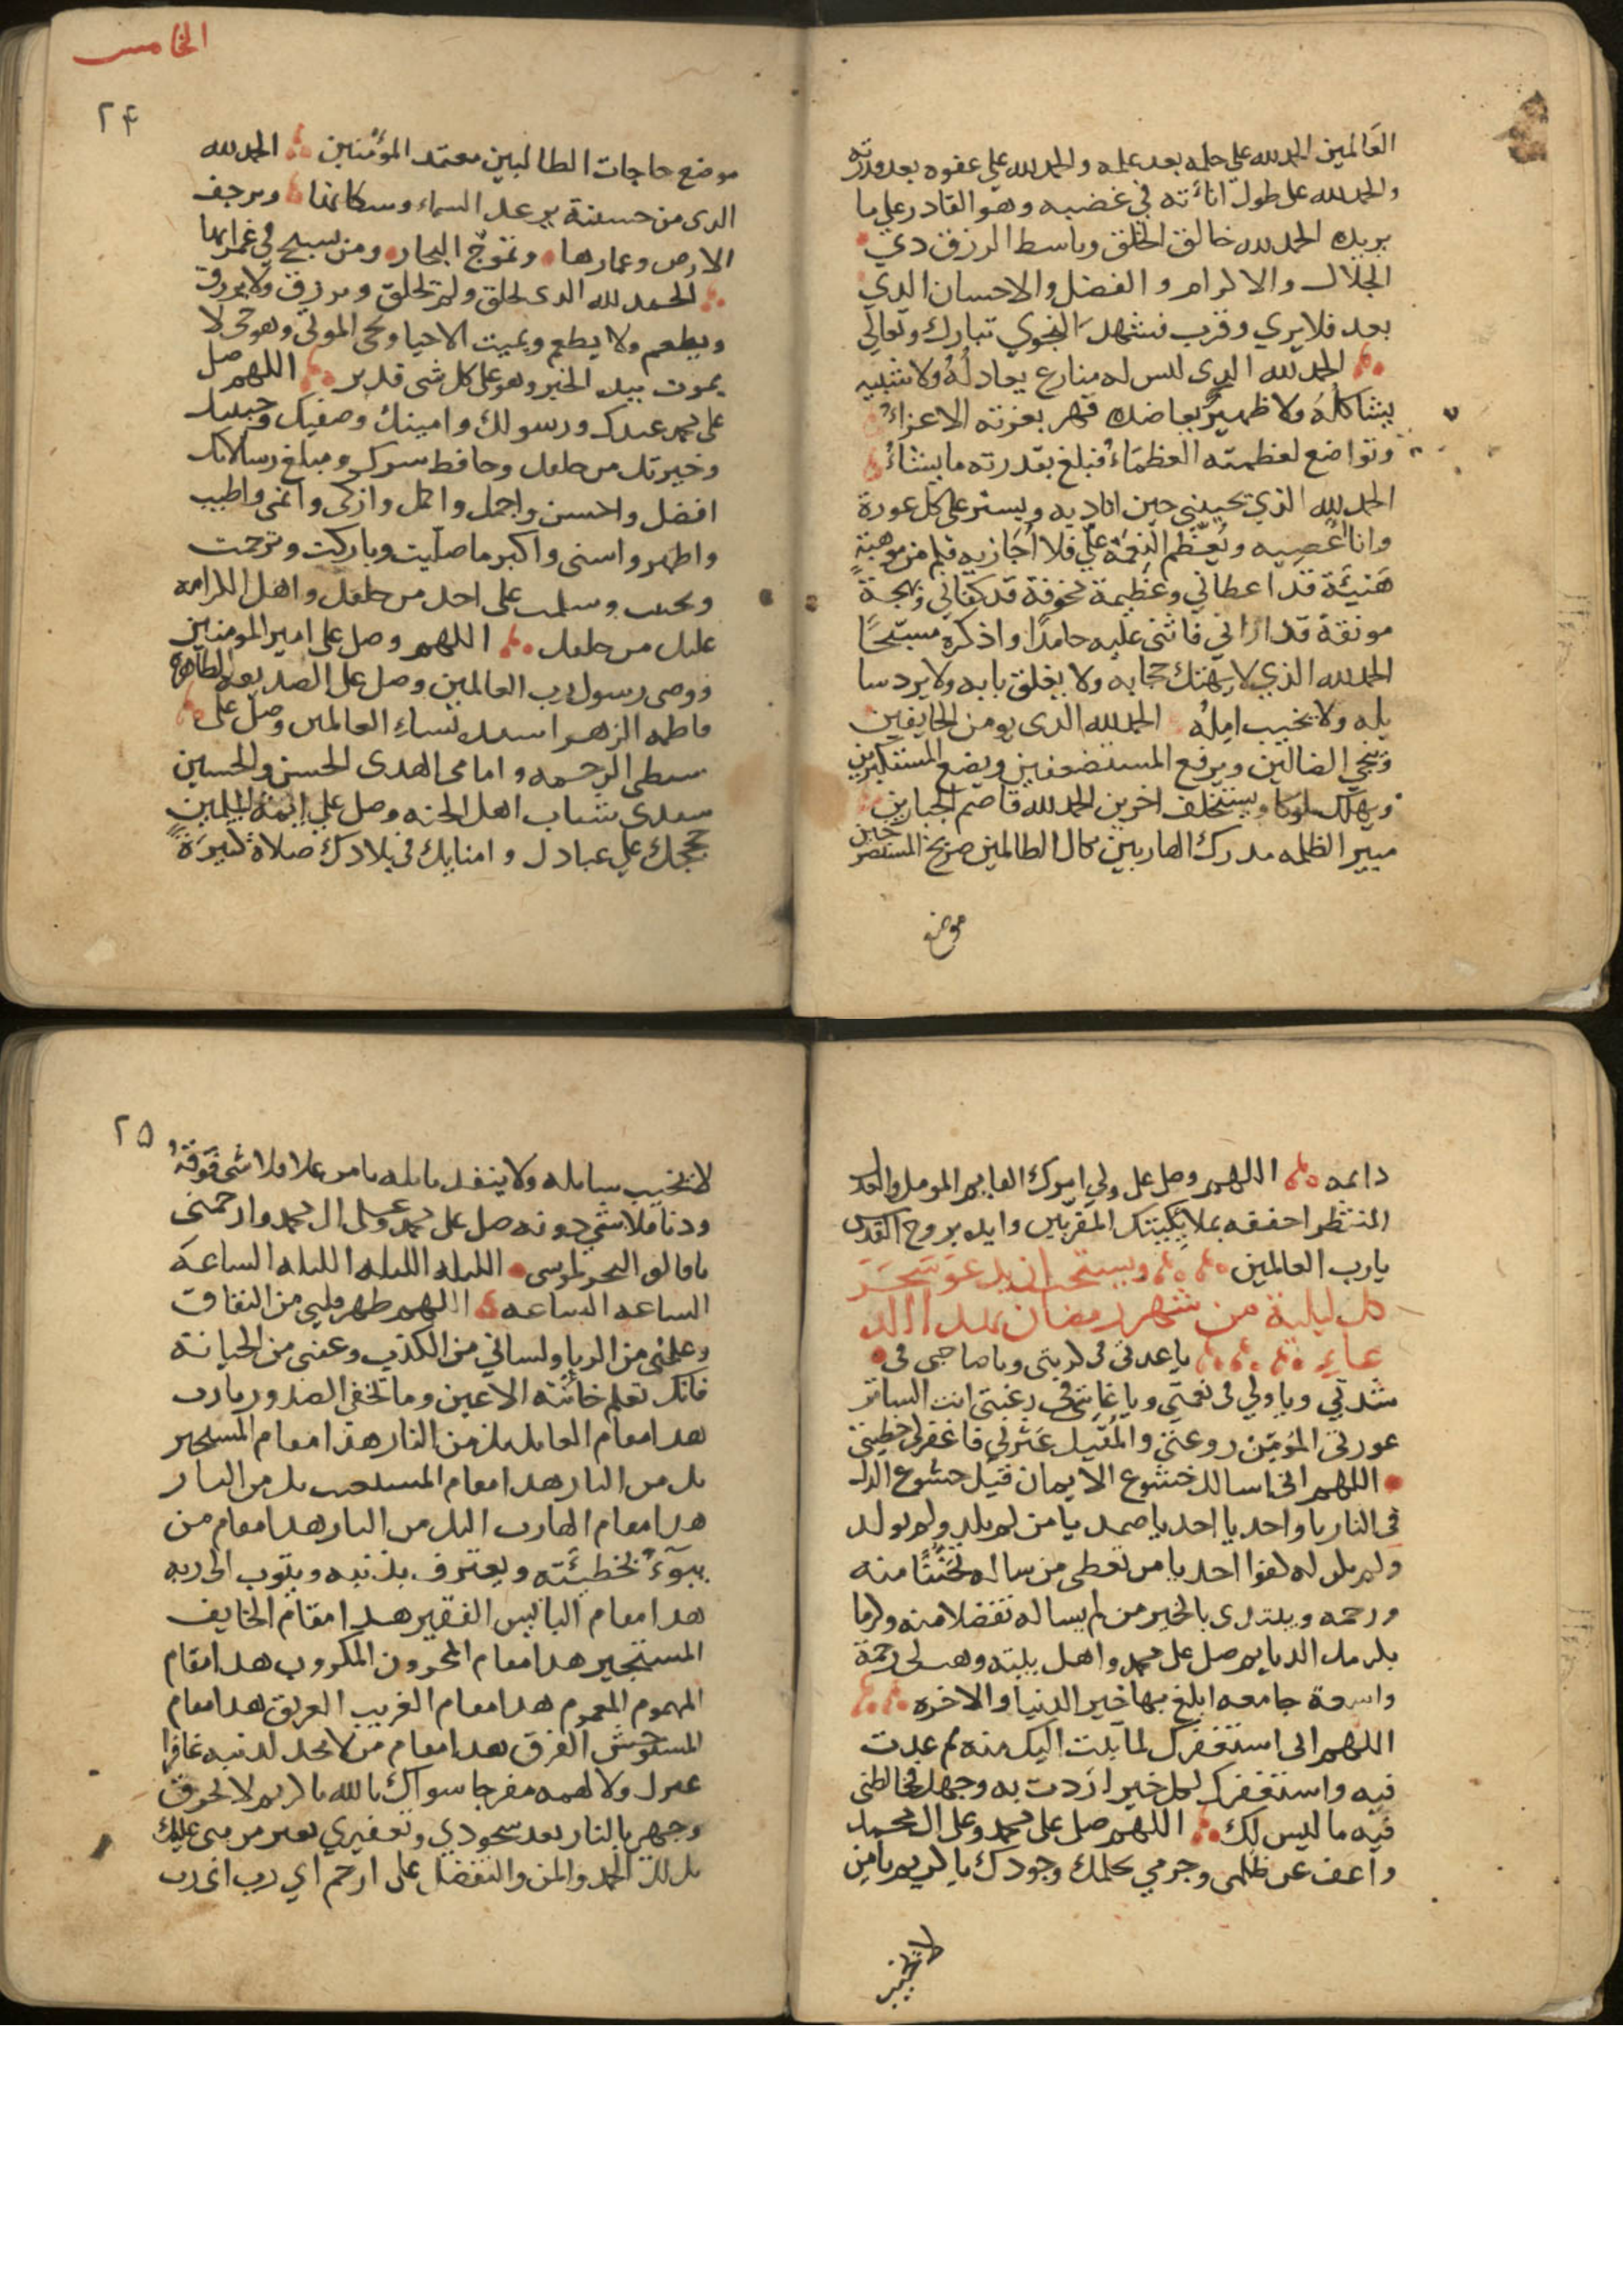 العَالمين الحمد لله على حلمه بعد علمه والحمد لله على عفوه بعد قدرته
والحمد لله على طول اناءته في غضبه وهو القادر على ما
يريده الحمد لله خالق الخلق وباسط الرزق دي
الجلال والاكرام والفضل والاحسان الدي
بعد فلا يري وقرب فشهد النجوي تبارك وتعالى
الحمد لله الدى ليس له منازع يعادلُهُ ولا شبيه
يشاكلُهُ ولا ظهيرٌ يعاضده قهر بعزته الاعزاءُ
وتواضع لعظمته العظمَاءُ فبلغ بقدرته ما يشاءُ
الحمد لله الذي يجيبني حين اناديه ويستر على كل عورة
وانا اعْصِيه ويُعَظّم النِعمَة عَلَي فلا اُجَازيه فكم من موهبةٍ
هَنيئَة قد اعطاني وعَظِيمة مخوفة قد كفاني وبهجة
مونقة قد اراني فاثني عليه حامدًا واذكره مسبّحًا
الحمد لله الذي لا يهتك حجابه ولا يغلق بابه ولا يرد سا
يله ولا يخيب امِلُه الحمد لله الدى يومن الخايفين
وينجي الضالين ويرفع المستضعفين ويضع المستكبرين
ويهلك ملوكا ويستخلف اخرين الحمد لله قاصم الجبارين
مبير الظلمه مدرك الهاربين نكال الظالمين صريخ المستصرخين
موضع
الخامس
٢۴
موضع حاجات الطالبين معتمد المؤمنين الحمد لله
الدى من خشية يرعد السماء وسكانها وترجف
الارض وعمارها وتموّج البحار ومن يسبح في غمراتها
الحمد لله الدى يخلق ولم يخلق ويرزق ولا يرزق
ويطعم ولا يطعم ويميت الاحيا ويحى الموتى وهو حى لا
يموت بيده الخير وهو على كل شى قدير اللهم صل
على محمد عبدك ورسولك وامينك وصفيك وحبيبك
وخيرتك من خلقك وحافظ سرك ومبلغ رسالاتك
افضل واحسن واجمل واكمل وازكى وانمى واطيب
واطهر واسنى واكبر ما صليت وباركت وترحمت
وتحننت وسلمت على احد من خلقك واهل الكرامه
عليك من خلقك اللهم وصل على امير المومنين
ووصى رسول رب العالمين وصل على الصديقه الطاهره
فاطمه الزهرا سيده نساءِ العالمين وصل على
سبطى الرحمه وامامى الهدى الحسن والحسين
سيدى شباب اهل الجنه وصل على ائمة المسلمين
حججك على عبادك وامنايك فى بلادك صلاة كثيرَةً
دايمه اللهم وصل على ولي امرك القايم المومل والعدل
المنتظر احففه بملايكتك المقربين وايده بروح القدس
يارب العالمين ويستحب ان يدعو سَحَرَ
كل ليلة من شهر رمضان بهدا الد
عاء يا عدتى فى كربتى ويا صاحبى فى
شدتي ويا ولي فى نعمتي ويا غايتى في رغبتى انت الساتر
عورتى المؤمِن روعتى والمُقيل عَثرتي فاغفر لي خطيئتى
اللهم انى اسالك خشوع الايمان قبل خشوع الدل
فى النار يا واحد يا احد يا صمد يا من لم يلد ولم يولد
ولم يكن له كفوا احد يا من يعطى من ساله تحَنُّنًا منه
ورحمه ويبتدى بالخير من لم يساله تفضلا منه وكرما
بكرمك الدايم صل على محمد واهل بيته وهب لى رحمة
واسعة جامعه ابلغ بها خير الدنيا والاخره
اللهم انى استغفرك لما تبت اليك منه ثم عدت
فيه واستغفرك لكل خير اردت به وجهك فخالطنى
فيه ما ليس لك اللهم صل على محمد وعلى ال محمد
واعف عن ظلمى وجرمي بحلمك وجودك يا كريم يا من
لا يخيب
٢۵
لا يخيب سايله ولا ينفد نايله يا من علا فلا شى فَوقهُ
ودنا فلا شي دونه صل على محمد وعلى ال محمد وارحمنى
يا فالق البحر لموسى الليله الليله الليله الساعة
الساعه الساعه اللهم طهر قلبي من النفاق
وعملى من الريا ولساني من الكذب وعينى من الخيانة
فانك تعلم خائنة الاعين وما تخفى الصدور يا رب
هدا مقام العايد بك من النار هذا مقام المستجير
بك من النار هدا مقام المستغيث بك من النار
هدا مقام الهارب اليك من النار هدا مقام من
يبوءُ بخطيئته ويعترف بذنبه ويتوب الى ربه
هدا مقام البائيس الفقير هدا مقام الخايف
المستجير هدا مقام المحزون المكروب هدا مقام
المهموم المغموم هدا مقام الغريب الغريق هدا مقام
المستوحش الفرق هدا مقام من لا يجد لدنبه غافرا
غيرك ولا لهمه مفرجا سواك يا الله يا كريم لا تحرق
وجهى بالنار بعد سجودي وتعفيري بغير من مني عليك
بل لك الحمد والمن والتفضل على ارحم اي رب اى رب